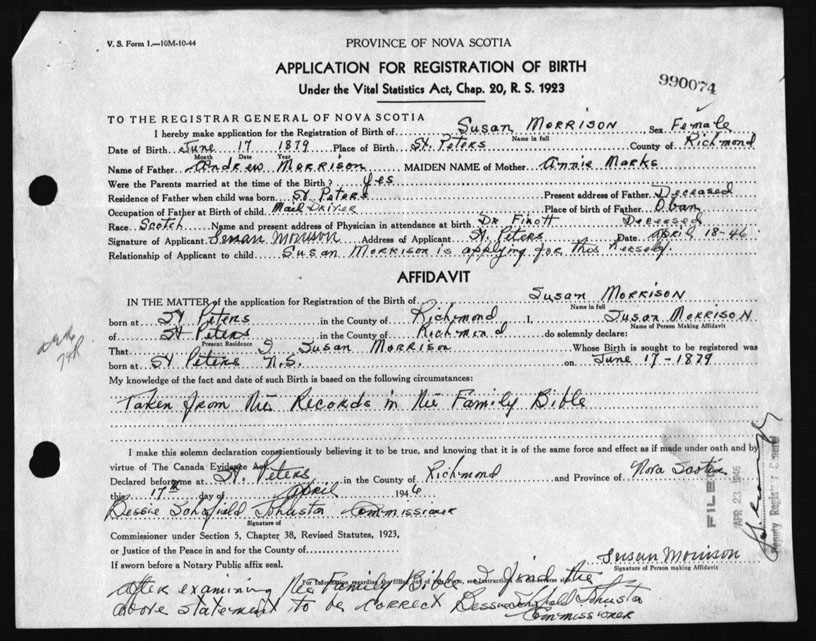 V. S. Form 1.—10M-10-44
PROVINCE OF NOVA SCOTIA
APPLICATION FOR REGISTRATION OF BIRTH
Under the Vital Statistics Act, Chap. 20, R. S. 1923
990074
TO THE REGISTRAR GENERAL OF NOVA SCOTIA
I hereby make application for the Registration of Birth of Susan Morrison Sex Female
Name in full
Date of Birth June 17 1879 Place of Birth St. Peters County of Richmond
Month Date Year
Name of Father Andrew Morrison MAIDEN NAME of Mother Annie Marks
Were the Parents married at the time of the Birth? yes
Residence of Father when child was born St Peters Present address of Father Deceased
Occupation of Father at Birth of child Mail Driver Place of birth of Father Oban
Race Scotch Name and present address of Physician in attendance at birth Dr Deceased
Signature of Applicant Susan Morrison Address of Applicant St. Peters Date April 18-46
Relationship of Applicant to child Susan Morrison is applying for this herself.
AFFIDAVIT
IN THE MATTER of the application for Registration of the Birth of Susan Morrison
Name in full
born at St Peters in the County of Richmond I, Susan Morrison
Name of Person Making Affidavit
of St Peters in the County of Richmond do solemnly declare:
Present Residence
That I, Susan Morrison Whose Birth is sought to be registered was
born at St Peters N.S. on June 17-1879
My knowledge of the fact and date of such Birth is based on the following circumstances:
Taken from the Records in the Family Bible
I make this solemn declaration conscientiously believing it to be true, and knowing that it is of the same force and effect as if made under oath and by
virtue of The Canada Evidence Act.
Declared before me at St. Peters in the County of Richmond and Province of Nova Scotia
this 17th day of April 1946
Bessie Schofield Johnston Commissioner
Signature of
Commissioner under Section 5, Chapter 38, Revised Statutes, 1923,
or Justice of the Peace in and for the County of
If sworn before a Notary Public affix seal.
Susan Morrison
Signature of Person making Affidavit
For Information regarding the filling out of this form, see Instructions on the reverse side
after examining the Family Bible I find the
above statement to be correct Bessie Schofield Johnston
Commissioner
FILED
APR 23 1946
Deputy Registrar General